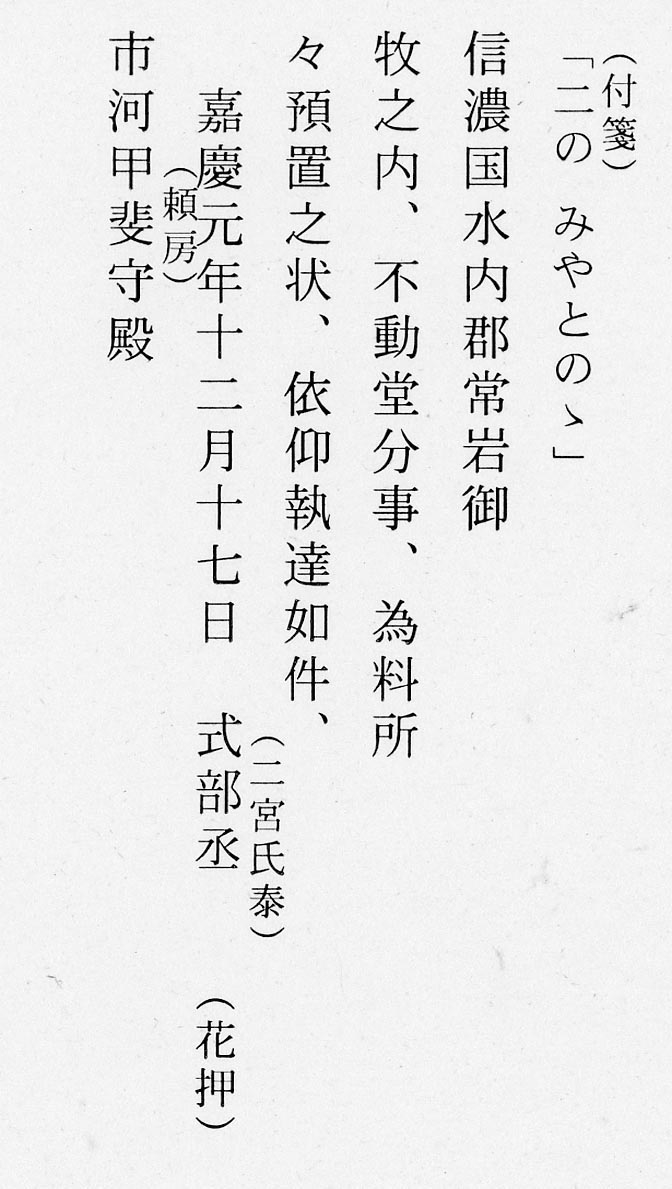 （付箋）
「二の みやとのゝ」
信濃国水内郡常岩御
牧之内、不動堂分事、為料所
々預置之状、依仰執達如件、
（二宮氏泰）
嘉慶元年十二月十七日 式部丞 （花押）
（頼房）
市河甲斐守殿